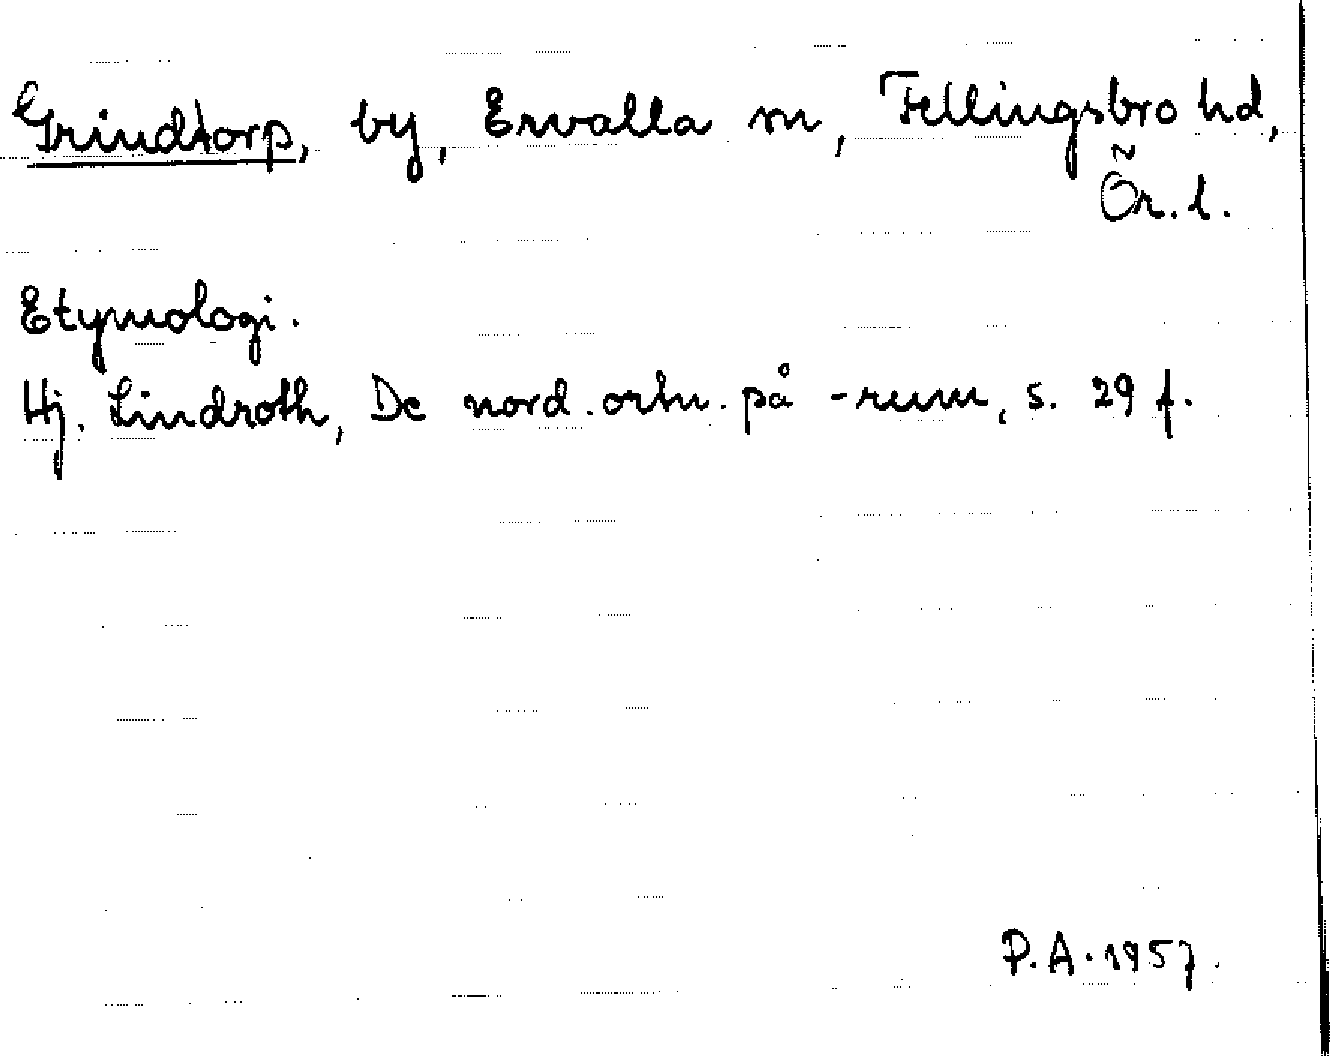 Grindtorp, by, Ervalla sn, Fellingsbro hd,
Ör. l.
Etymologi.
Hj. Lindroth, De nord. ortn. på -rum, s. 29 f.
P. A. 1957.